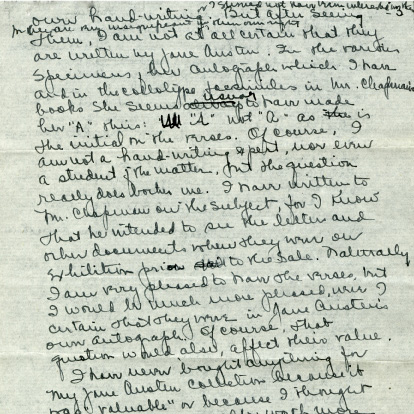 own hand-writing. But after seeing
them, I am not at all certain that they
are written by Jane Austen. In the various
specimens of her autograph which I have
and in the collotype facsimiles in Mr. Chapman's
books she seems usually to have made
her "A" this: "A" not "a" as is
the initial on the verses. Of course, I
am not a hand-writing expert, nor even
a student of the matter, but the question
really does bother me. I have written to
Mr. Chapman on the subject, for I know
that he intended to see the letters and
other documents when they were on
exhibition prior to the sale. Naturally
I am very pleased to have the verses, but
I would be much more pleased, were I
certain that they were in Jane Austen's
own autograph. Of course, that
question would also, affect their value.
I have never bought anything for
my Jane Austen collection because it
was "valuable" or because I thought